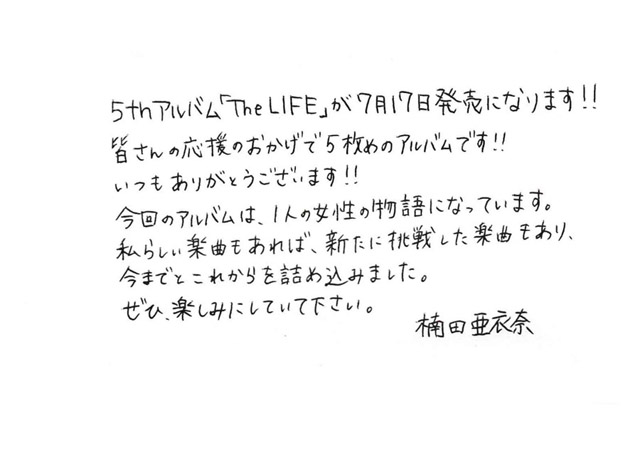 5thアルバム「The LIFE」が7月17日発売になります!!
皆さんの応援のおかげで5枚めのアルバムです!!
いつもありがとうございます!!
今回のアルバムは、1人の女性の物語になっています。
私らしい楽曲もあれば、新たに挑戦した楽曲もあり、
今までとこれからを詰め込みました。
ぜひ、楽しみにしていて下さい。
楠田亜衣奈